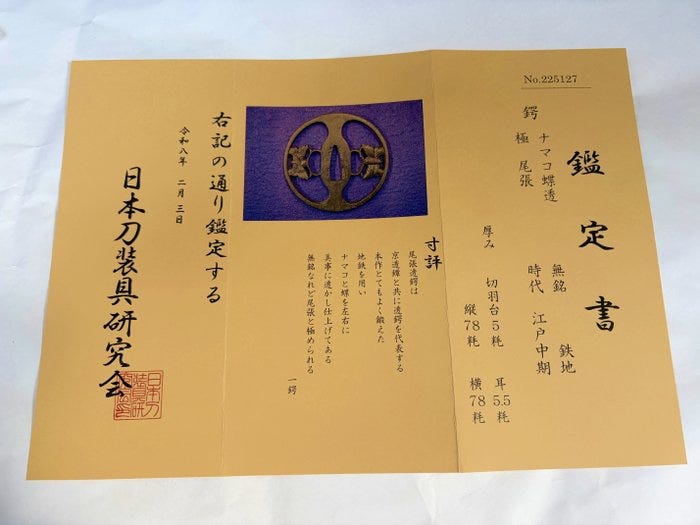 No.225127
鑑定書
鍔 ナマコ蝶透 無銘 鉄地
極 尾張 時代 江戸中期
厚み 切羽台5粍 耳5.5粍
縦78粍 横78粍
寸評
尾張透鍔は
京透鐔と共に透鍔を代表する
本作とてもよく鍛えた
地鉄を用い
ナマコと蝶を左右に
美事に透かし仕上げてある
無銘なれど尾張と極められる
一鍔
右記の通り鑑定する
令和八年 二月三日
日本刀装具研究会